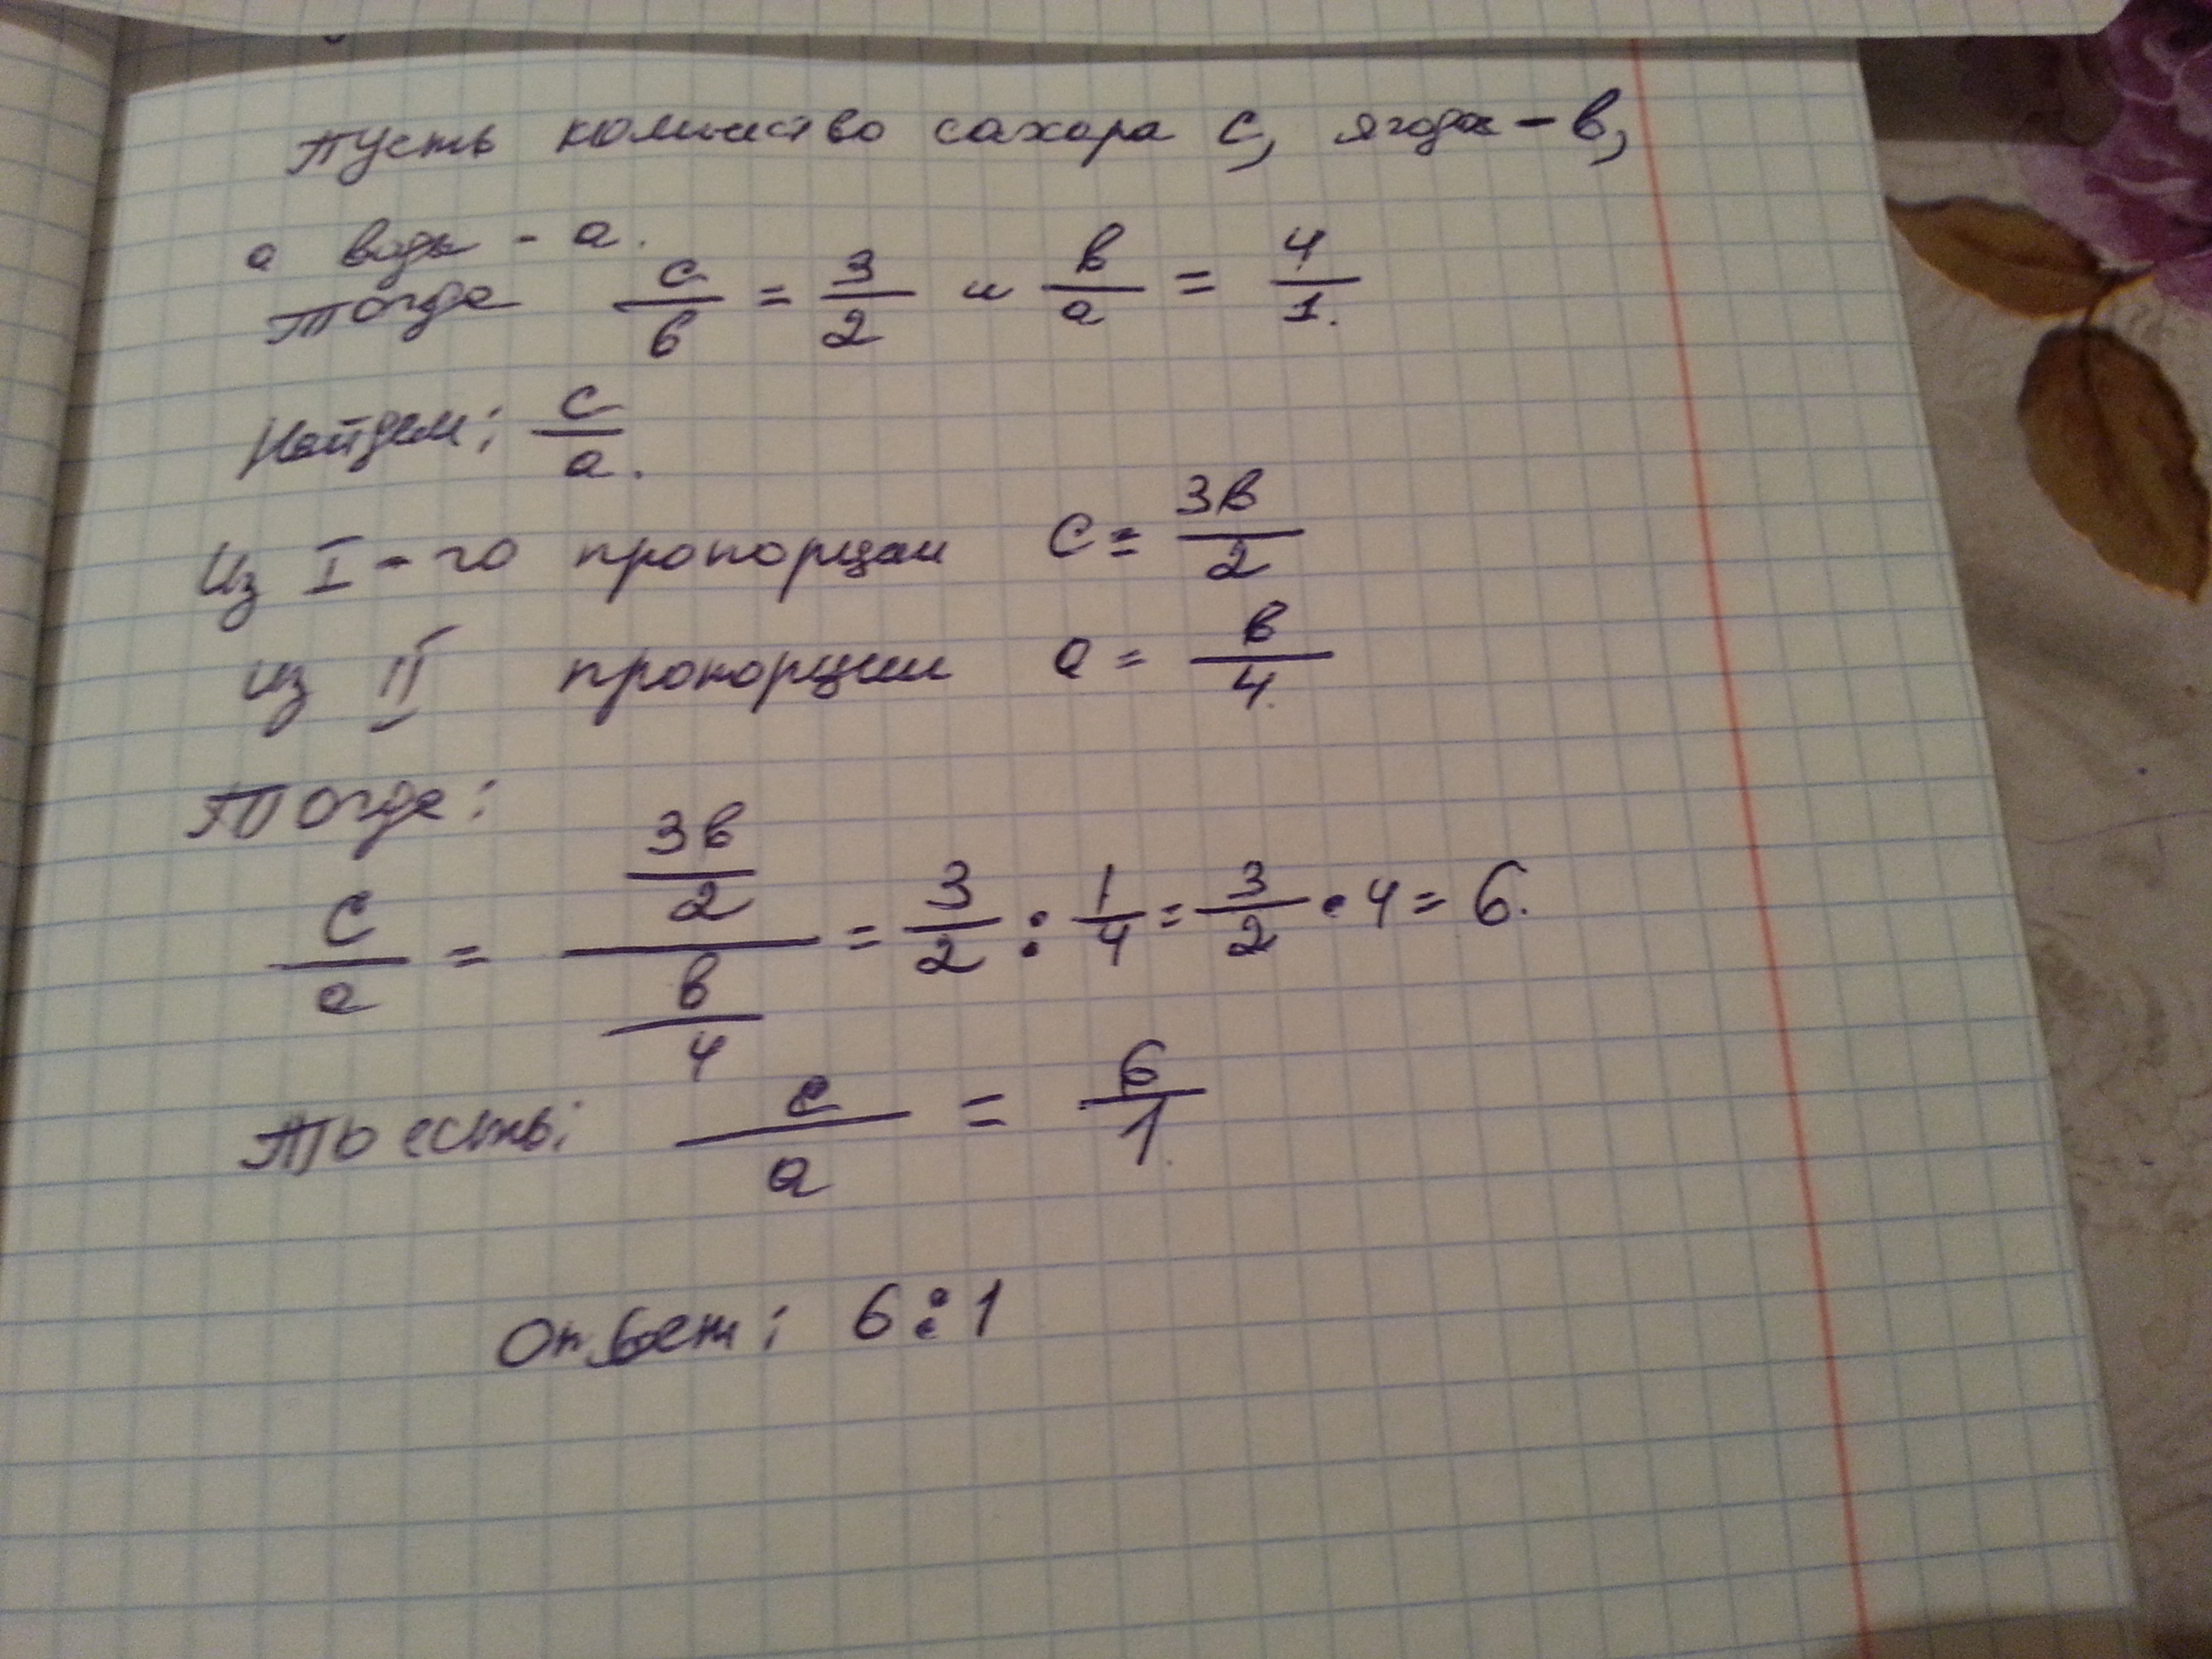 Пусть количество сахара с, ягода - в,
а воды - а.
Тогда c/в = 3/2 и в/а = 4/1.
Найдем: c/a.
Из I-го пропорции c = 3в/2
из II пропорции a = в/4.
Тогда:
c/a = (3в/2)/(в/4) = 3/2 : 1/4 = 3/2 · 4 = 6.
То есть: c/a = 6/1.
Ответ: 6:1